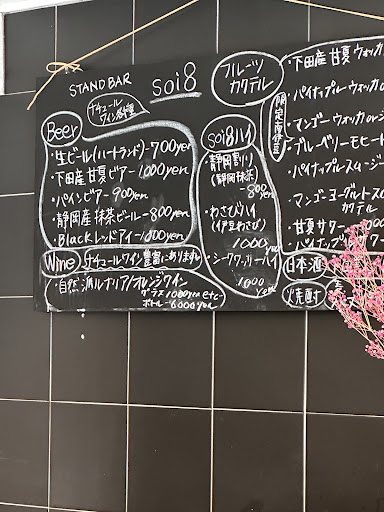 STAND BAR soi8
ナチュール
ワイン各種
Beer
・生ビール(ハートランド)-700yen
・下田産 甘夏ビアー 1000yen
・パインビアー 900yen
・静岡産抹茶ビール-800yen
・Blackレッドアイー1000yen
Wine ナチュールワイン豊富にあります
・自然派ルナリア/オレンジワイン
グラス 1000yen etc~
ボトル-6000yen
soi8ハイ
・静岡割り
(静岡抹茶)
-800yen
・わさびハイ
(伊豆わさび)
1000yen
・シークワーサーハイ
1000yen
フルーツ
カクテル
・下田産 甘夏ウォッカ
・パイナップルウォッカ
・マンゴーウォッカ
・ブルーベリーモヒート
・パイナップルスムージー
・マンゴーヨーグルト
カクテル
・甘夏サワー
・パイナップル
日本酒
焼酎